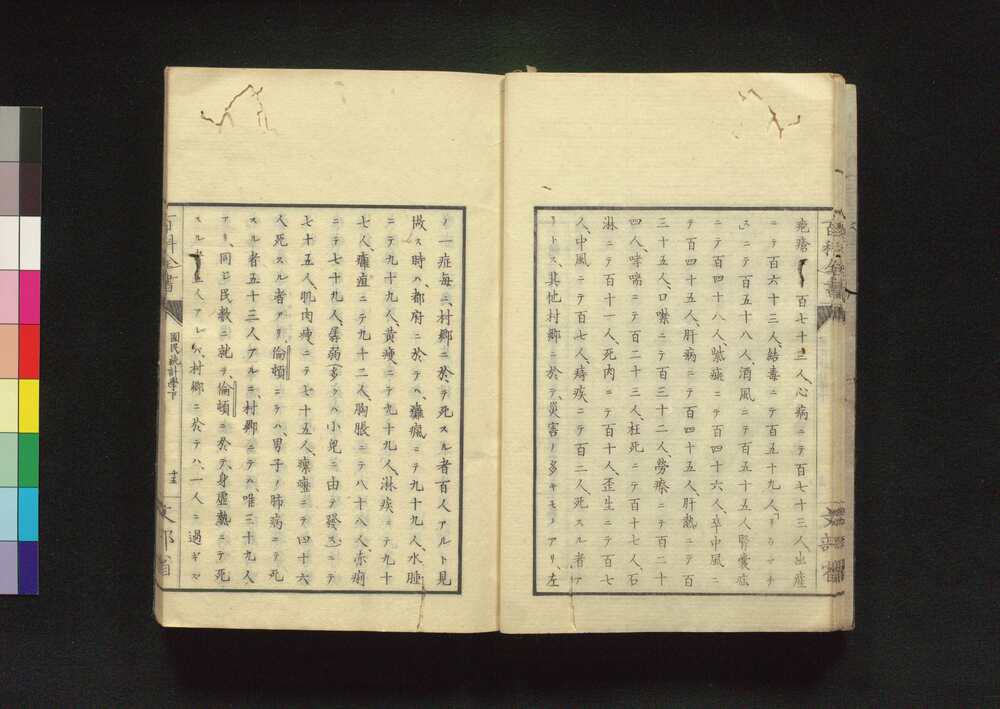 疱瘡 百七十三人、心病ニテ百七十三人、出産
ニテ百六十三人、結毒ニテ百五十九人、
ニテ百五十八人、酒風ニテ百五十五人、腎嚢
ニテ百四十八人、紫 ニテ百四十六人、卒中風ニ
テ百四十五人、肝病ニテ百四十五人、肝熱ニテ百
三十五人、口 ニテ百三十二人、労 ニテ百二十
四人、哮喘ニテ百二十三人、枉死ニテ百十七人、石
淋ニテ百十一人、死肉ニテ百十人、歪生ニテ百七
人、中風ニテ百七人、痔疾ニテ百二人死スル者ア
リトス、其他村郷ニ於テ、災害ノ多キモノアリ、左
百科全書
文部省
ノ一症毎ニ、村郷ニ於テ死スル者百人アルト見
做ス時ハ、都府ニ於テハ、癰瘋ニテ九十九人、水腫
ニテ九十九人、黄痩ニテ九十九人、淋疾ニテ九十
七人、癰疽ニテ九十二人、胸脹ニテ八十八人、赤痢
ニテ七十九人、孱弱(多クハ小児ニ由テ發ス)ニテ
七十五人、肌肉痩ニテ七十五人、 ニテ四十六
人死スル者アリ、倫頓ニテハ、男子ノ肺病ニテ死
スル者五十三人アルニ、村郷ニテハ、唯三十九人
アリ、同シ民数ニ就テ、倫頓ニ於テ、身虚熱ニテ死
スル者 人アレバ、村郷ニ於テハ、一人ニ過ギズ
百科全書
國民統計學下
十三
文部省